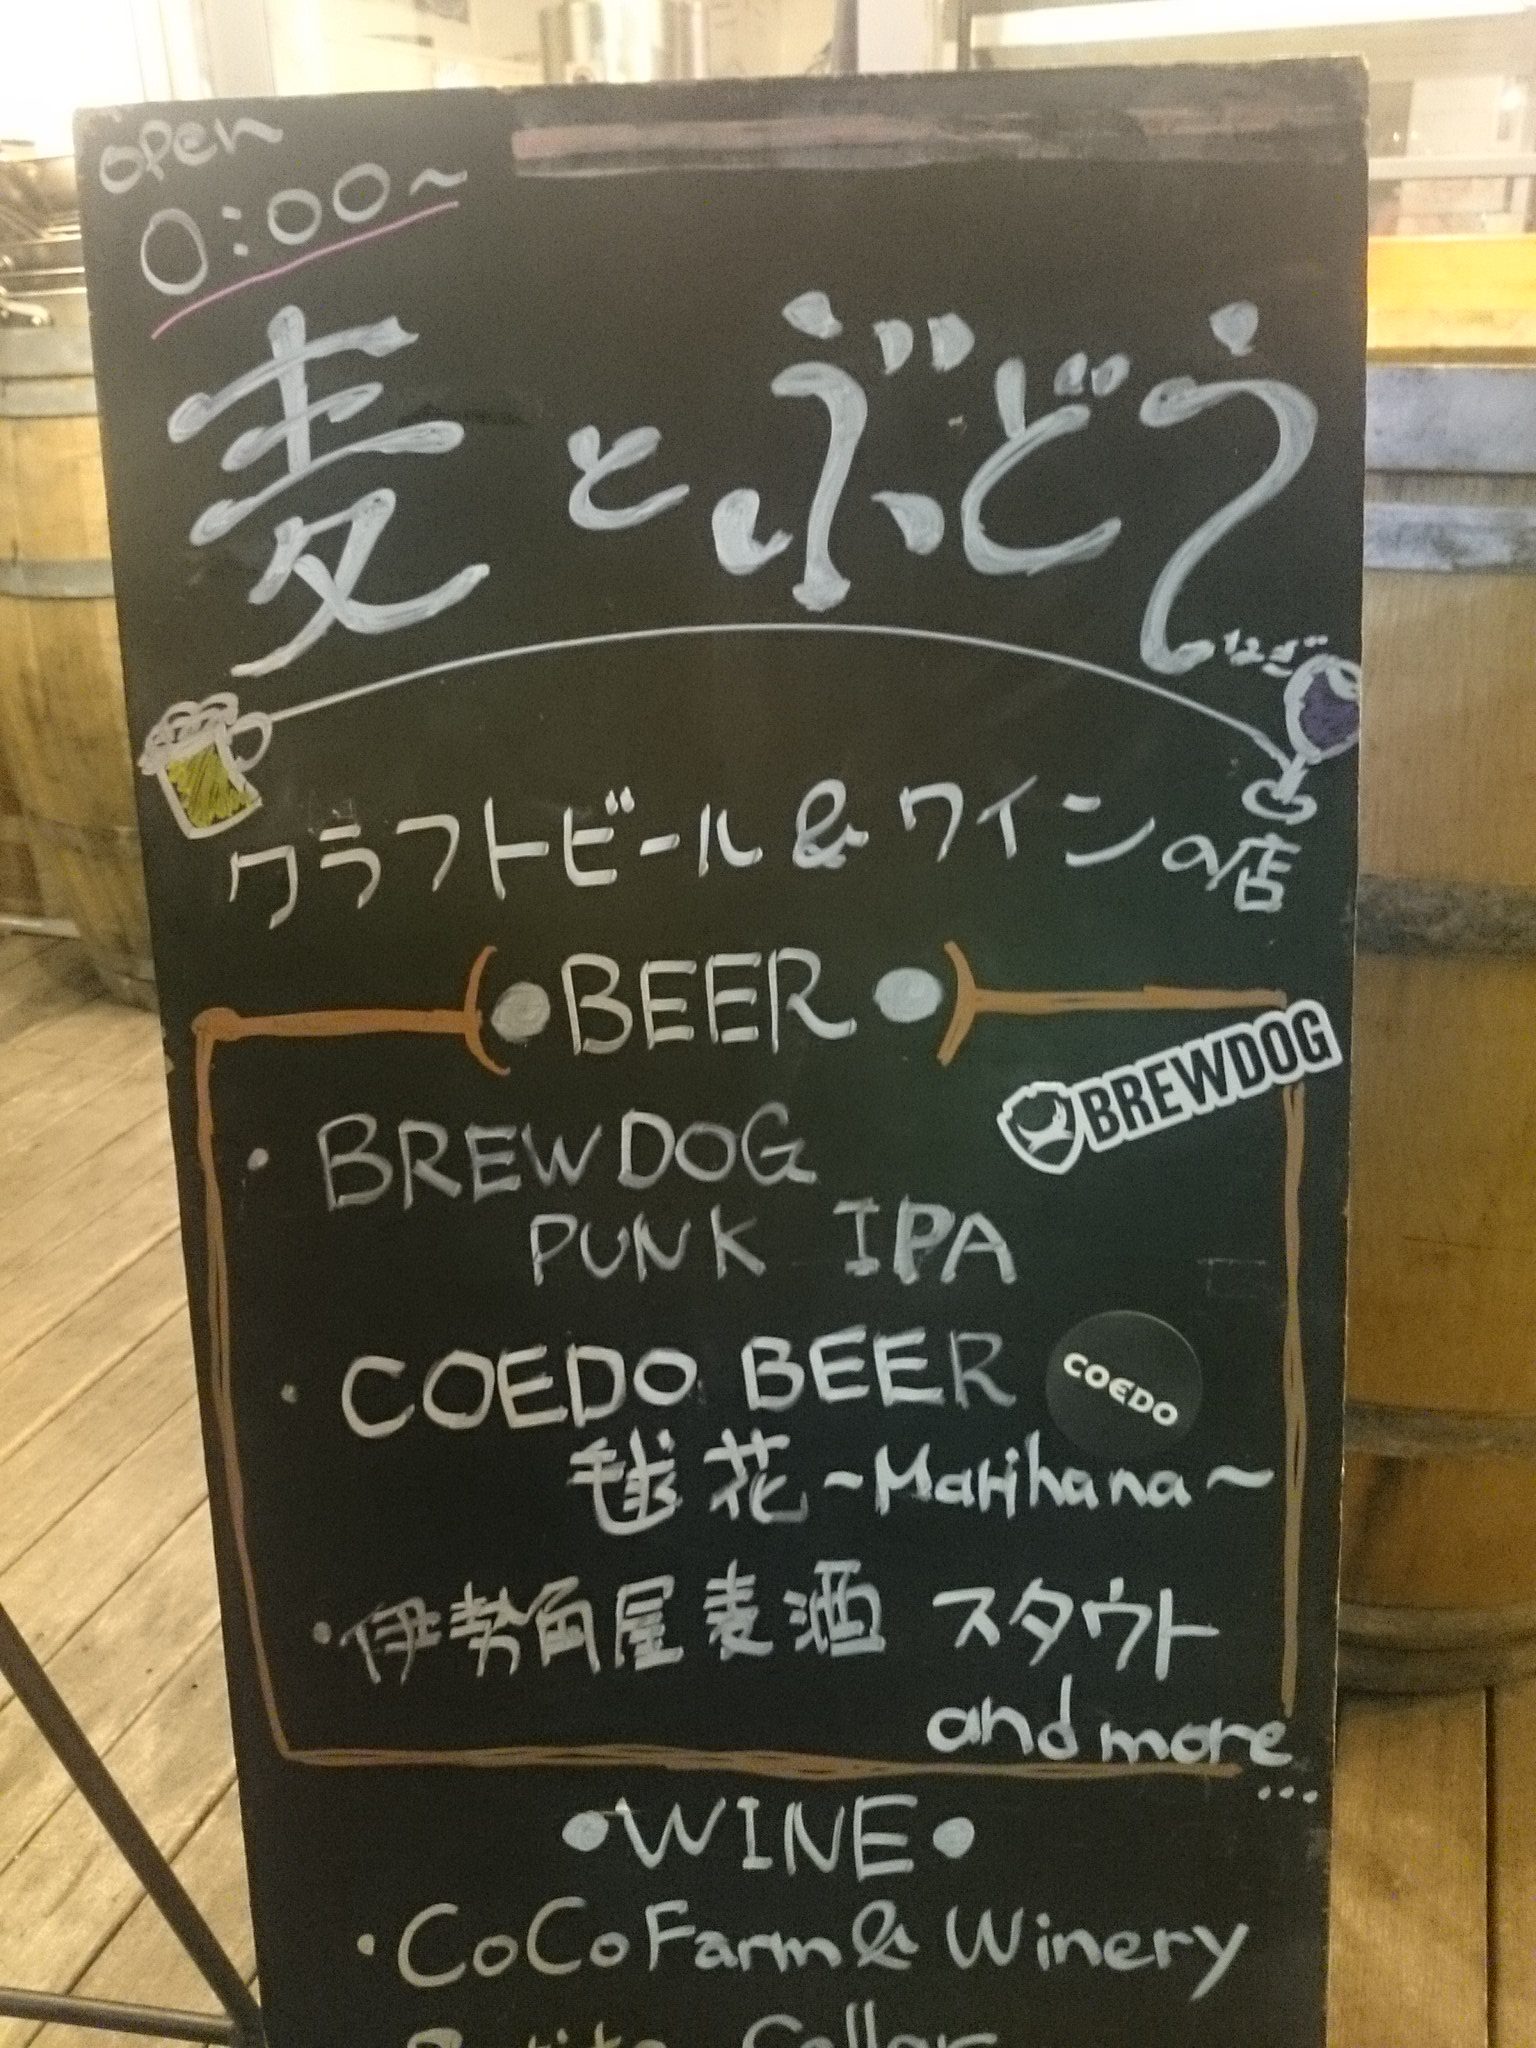 open
0:00~
麦とぶどう
クラフトビール&ワインの店
BEER
BREWDOG
・BREWDOG
PUNK IPA
・COEDO BEER
COEDO
毬花~Marihana~
・伊勢角屋麦酒 スタウト
and more
...
・WINE・
・CoCo Farm & Winery
Cellar